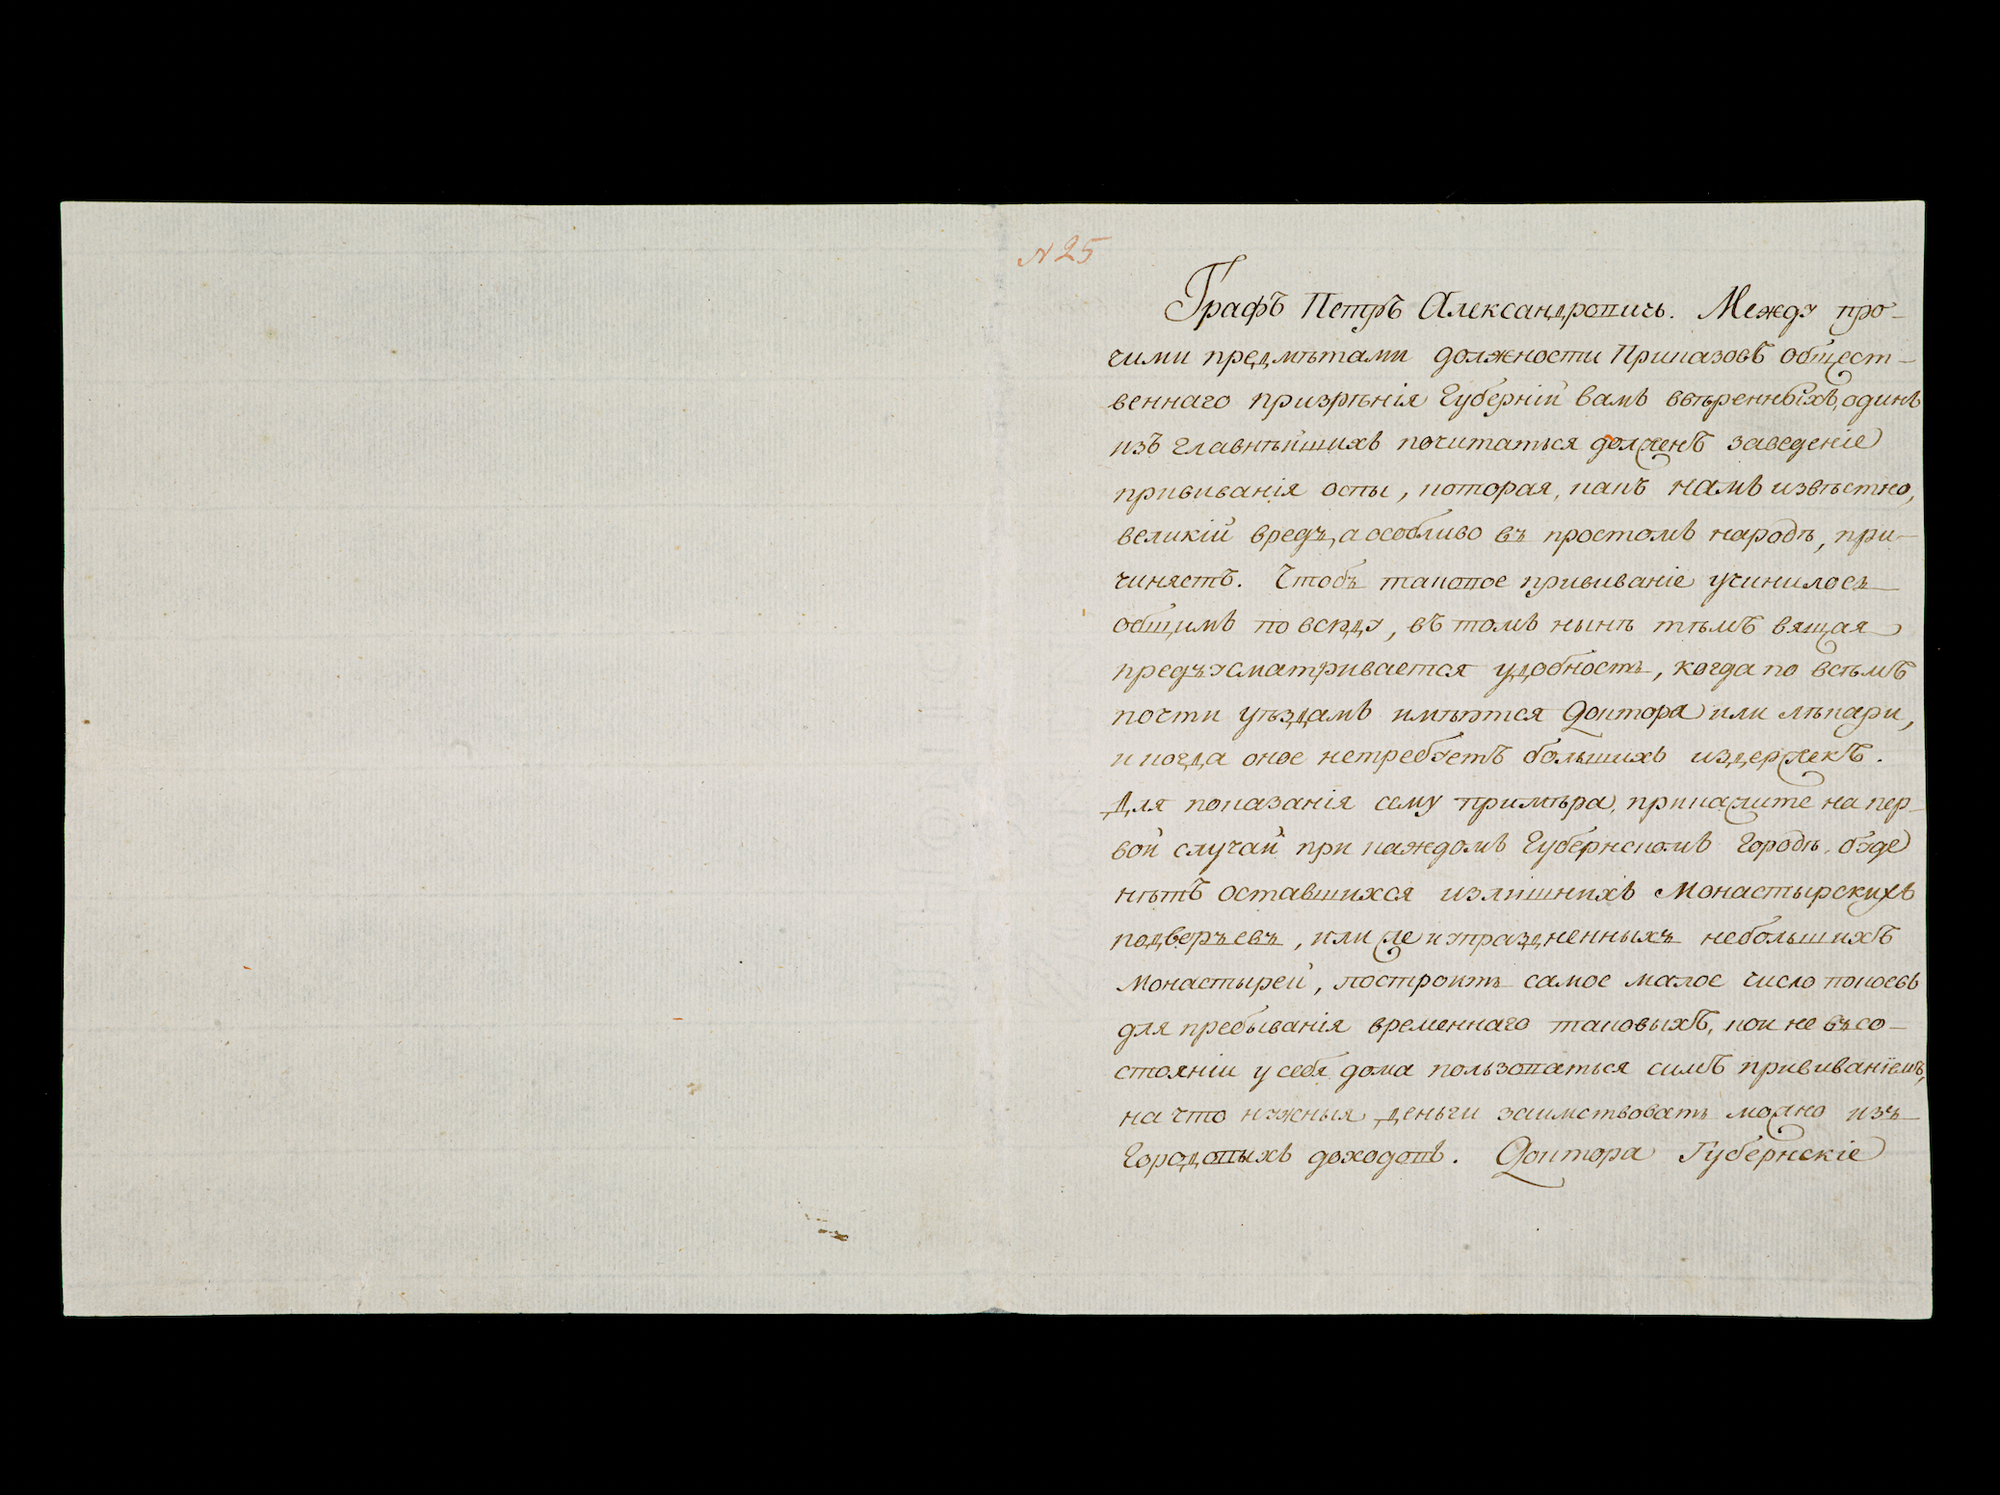 N 25
Графъ Петръ Александровичь. Между про-
чими предмѣтами должности Приказовъ общест-
веннаго призрѣнія Губерній вамъ ввѣренныхъ, одинъ
изъ главнѣйшихъ почитаться долженъ заведеніе
прививанія оспы, которая, какъ намъ извѣстно,
великій вредъ, а особливо въ простомъ народѣ, при-
чиняетъ. Чтобъ таковое прививаніе учинилось
общимъ по всюду, въ томъ нынѣ тѣмъ вящая
предъусматривается удобность, когда по всѣмъ
почти уѣздамъ имѣются Доктора или лѣкари,
и когда оное нетребуетъ большихъ издержекъ.
Для показанія сему примѣра, прикажите на пер-
вой случай при каждомъ Губернскомъ Городѣ, буде
нѣтъ оставшихся излишнихъ Монастырскихъ
подверьевъ, или же и упраздненныхъ небольшихъ
Монастырей, построить самое малое число покоевъ
для пребыванія временнаго таковыхъ, кои не въ со-
стояніи у себя дома пользоваться симъ прививаніемъ,
на что нужныя деньги заимствовать можно изъ
Городовыхъ доходовъ. Доктора Губернскіе